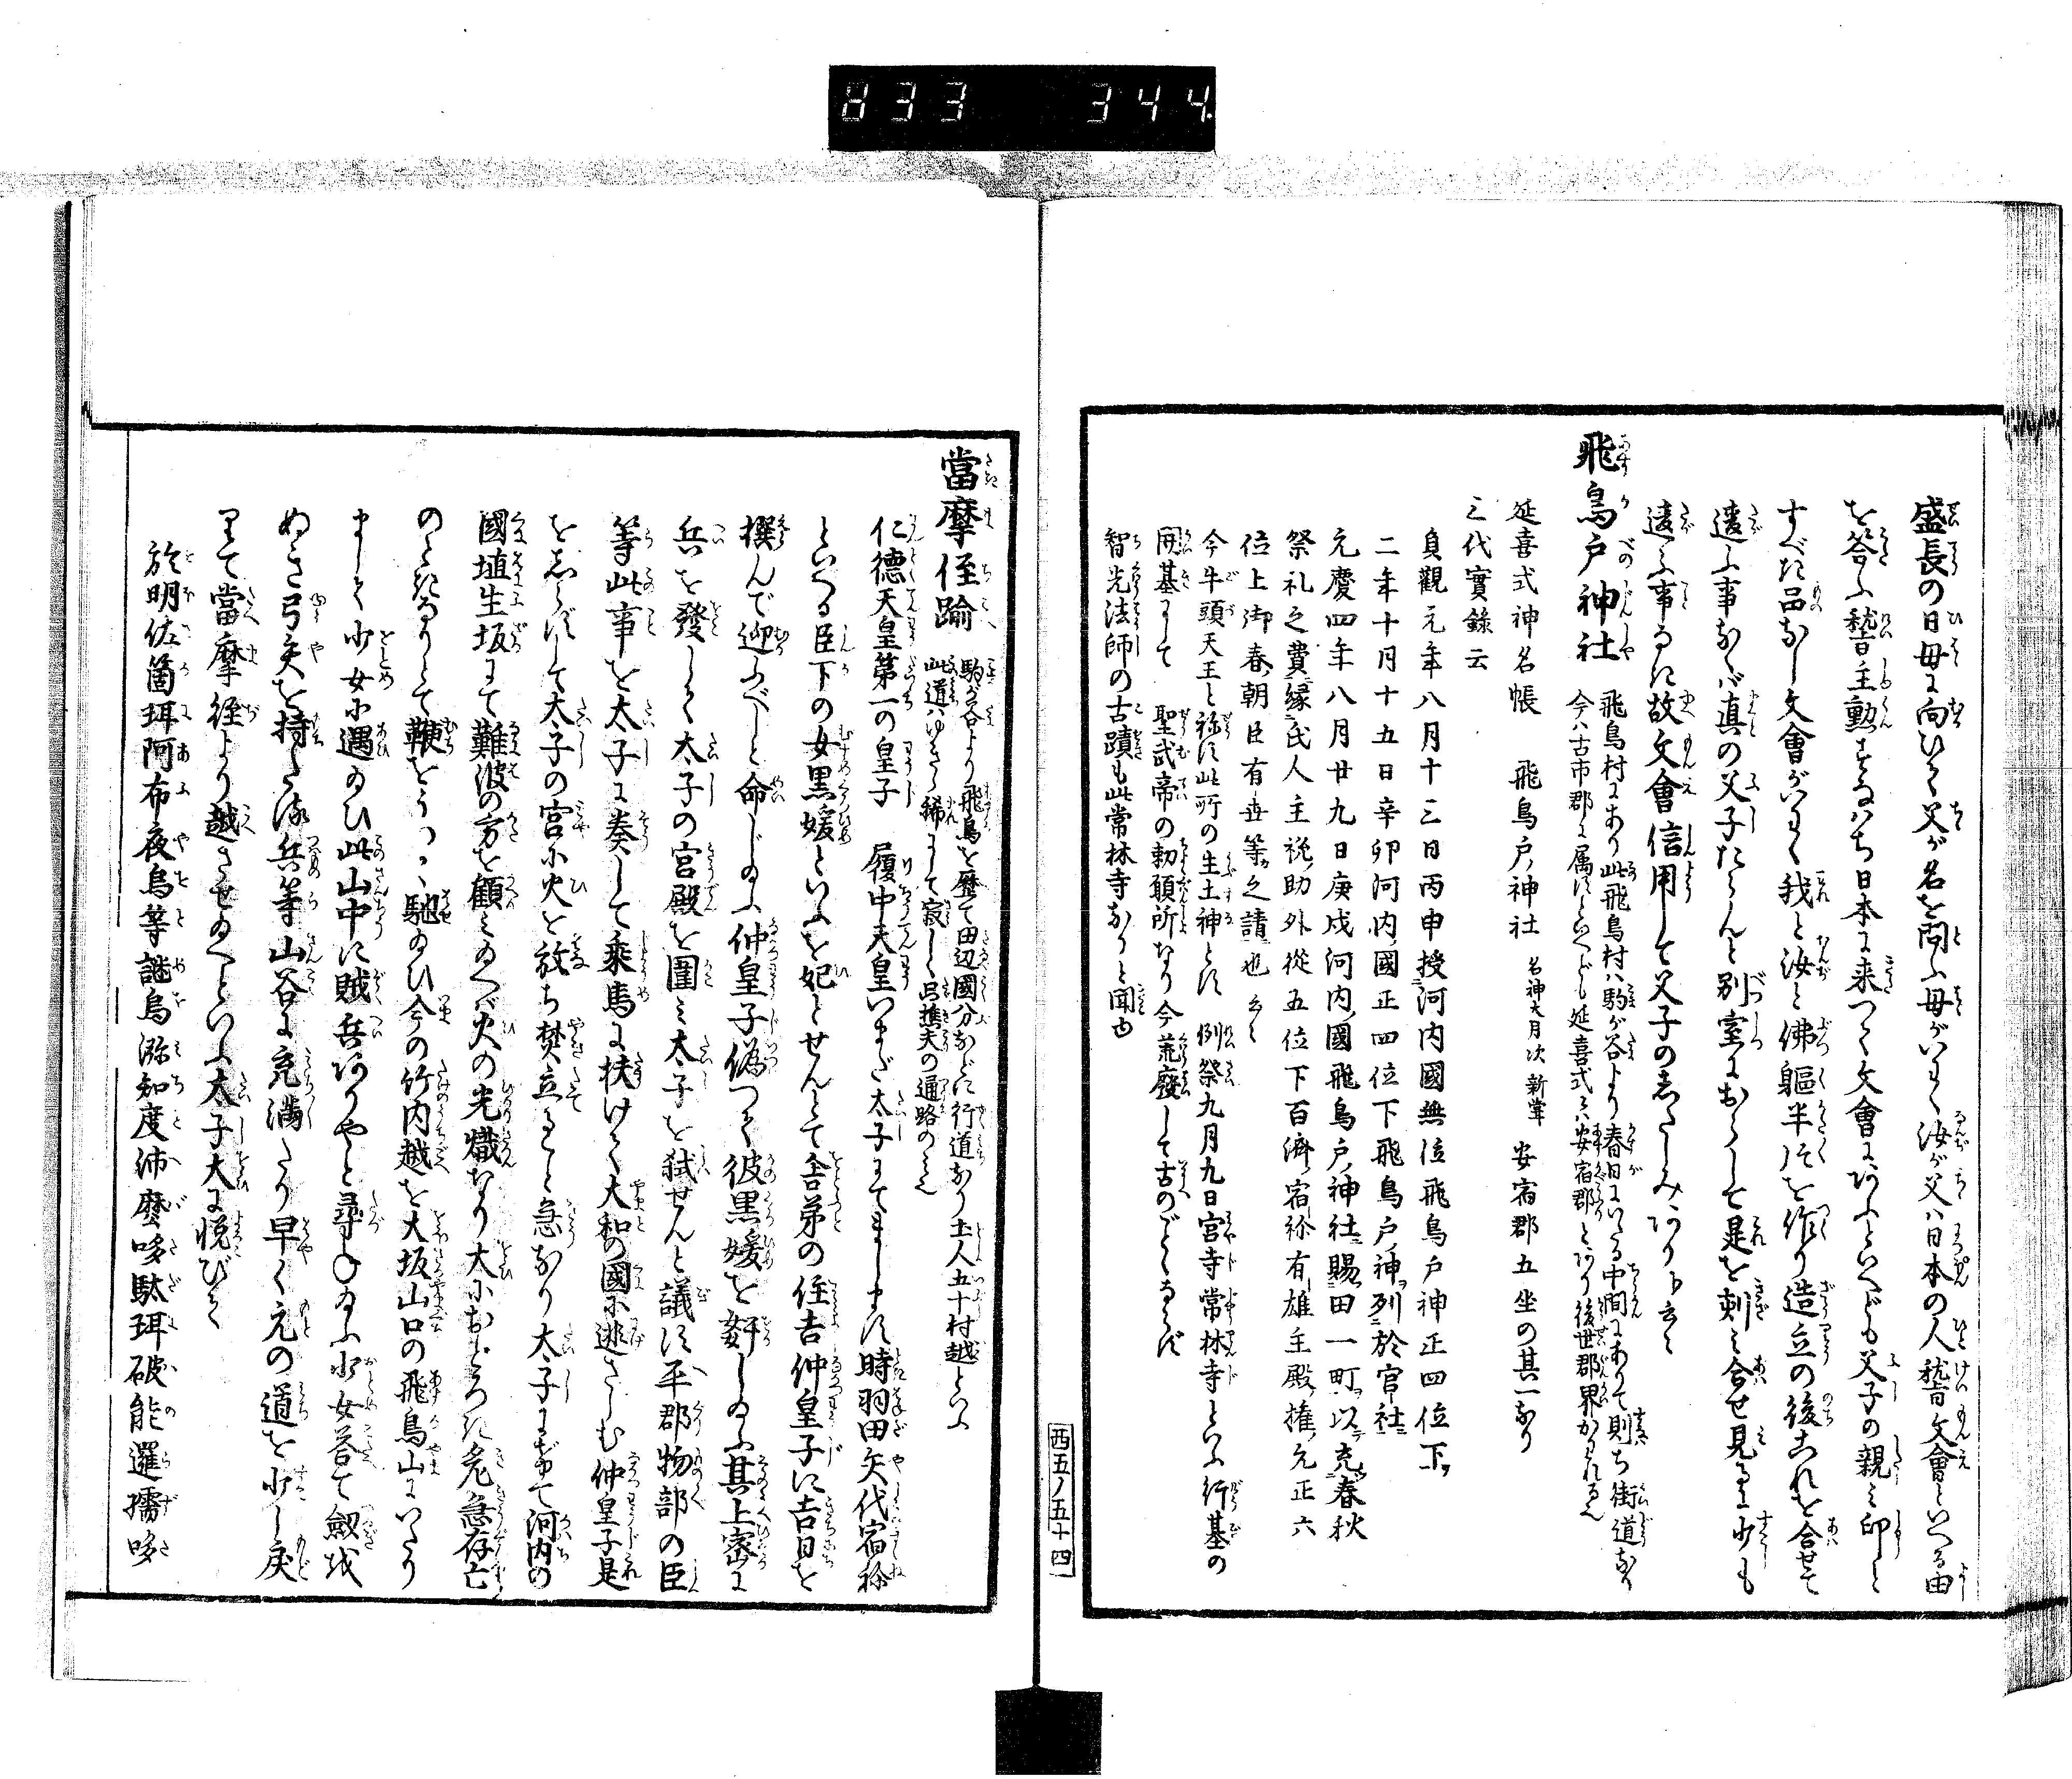 833 344
盛長の日母に向ひて父が名を問ふ母がいはく汝が父ハ日本の人稽文會といへる由
を答ふ稽主勲すなハち日本に来つて文會にあふといへども父子の親ミ印と
すべき品なし文會がいはく我と汝と佛軀半パを作り造立の後これを合せて
違ふ事なくバ真の父子たらんと別室におゐて是を刺ミ合せ見るに少も
違ふ事なきに故文會信用して父子のしたしみありけり云云
飛鳥戸神社
飛鳥村にあり此飛鳥村ハ駒が谷より春日にいたる中間にありて則ち街道なり
今ハ古市郡に属すといへども延喜式にハ安宿郡とあり後世郡界かわれるならん
延喜式神名帳 飛鳥戸ノ神社 名神大月次新嘗 安宿郡五坐の其一なり
三代實錄云
貞觀元年八月十三日丙申授河内國無位飛鳥戸神正四位下
二年十月十五日辛卯河内國正四位下飛鳥戸神列於官社
元慶四年八月廿九日庚戌河内國飛鳥戸神社賜田一町以充春秋
祭礼之費縁氏人主税助外從五位下百濟宿祢有雄主殿権允正六
位上御春朝臣有世等之請也云云
今牛頭天王と称す此所の生土神とす 例祭九月九日宮寺常林寺といふ行基の
開基にして 聖武帝の勅願所なり今荒廢して古のごとくならず
智光法師の古蹟も此常林寺なりと聞ゆ
西五ノ五十四
當摩徑踰
駒が谷より飛鳥を歴て田辺國分などに行道なり土人五十村越といふ
此道ハゆきゝ稀にして寂しく只樵夫の通路のミ
仁德天皇第一の皇子 履中天皇いまだ太子にてまします時羽田矢代宿祢
といへる臣下の女黒媛といふを妃とせんとて舎弟の住吉仲皇子に吉日を
撰んで迎ふべしと命じ給ふ仲皇子偽つて彼黒媛を姧し給ふ其上密に
兵を發して太子の宮殿を圍ミ太子を弑せんと議す平郡物部の臣
等此事を太子に奏して乘馬に扶けて大和の國に逃さしむ仲皇子是
をしらずして太子の宮に火を放ち焚立ること急なり太子にげて河内の
國埴生坂にて難波の方を顧ミ給へバ火の光熾なり大におどろき危急存亡
のときなりとて鞭をうつて馳給ひ今の竹内越を大坂山口の飛鳥山にいたり
まして少女に遇給ひ此山中に賊兵ありやと尋ね給ふ少女荅て劔戟
ぬき弓矢を持たる兵等山谷に充滿たり早く元の道を少し戻
りて當摩徑より越させ給へといふ太子大に悦びて
於明佐箇珥阿布夜烏等謎烏瀰知度沛麼哆駄珥破能邏孺哆